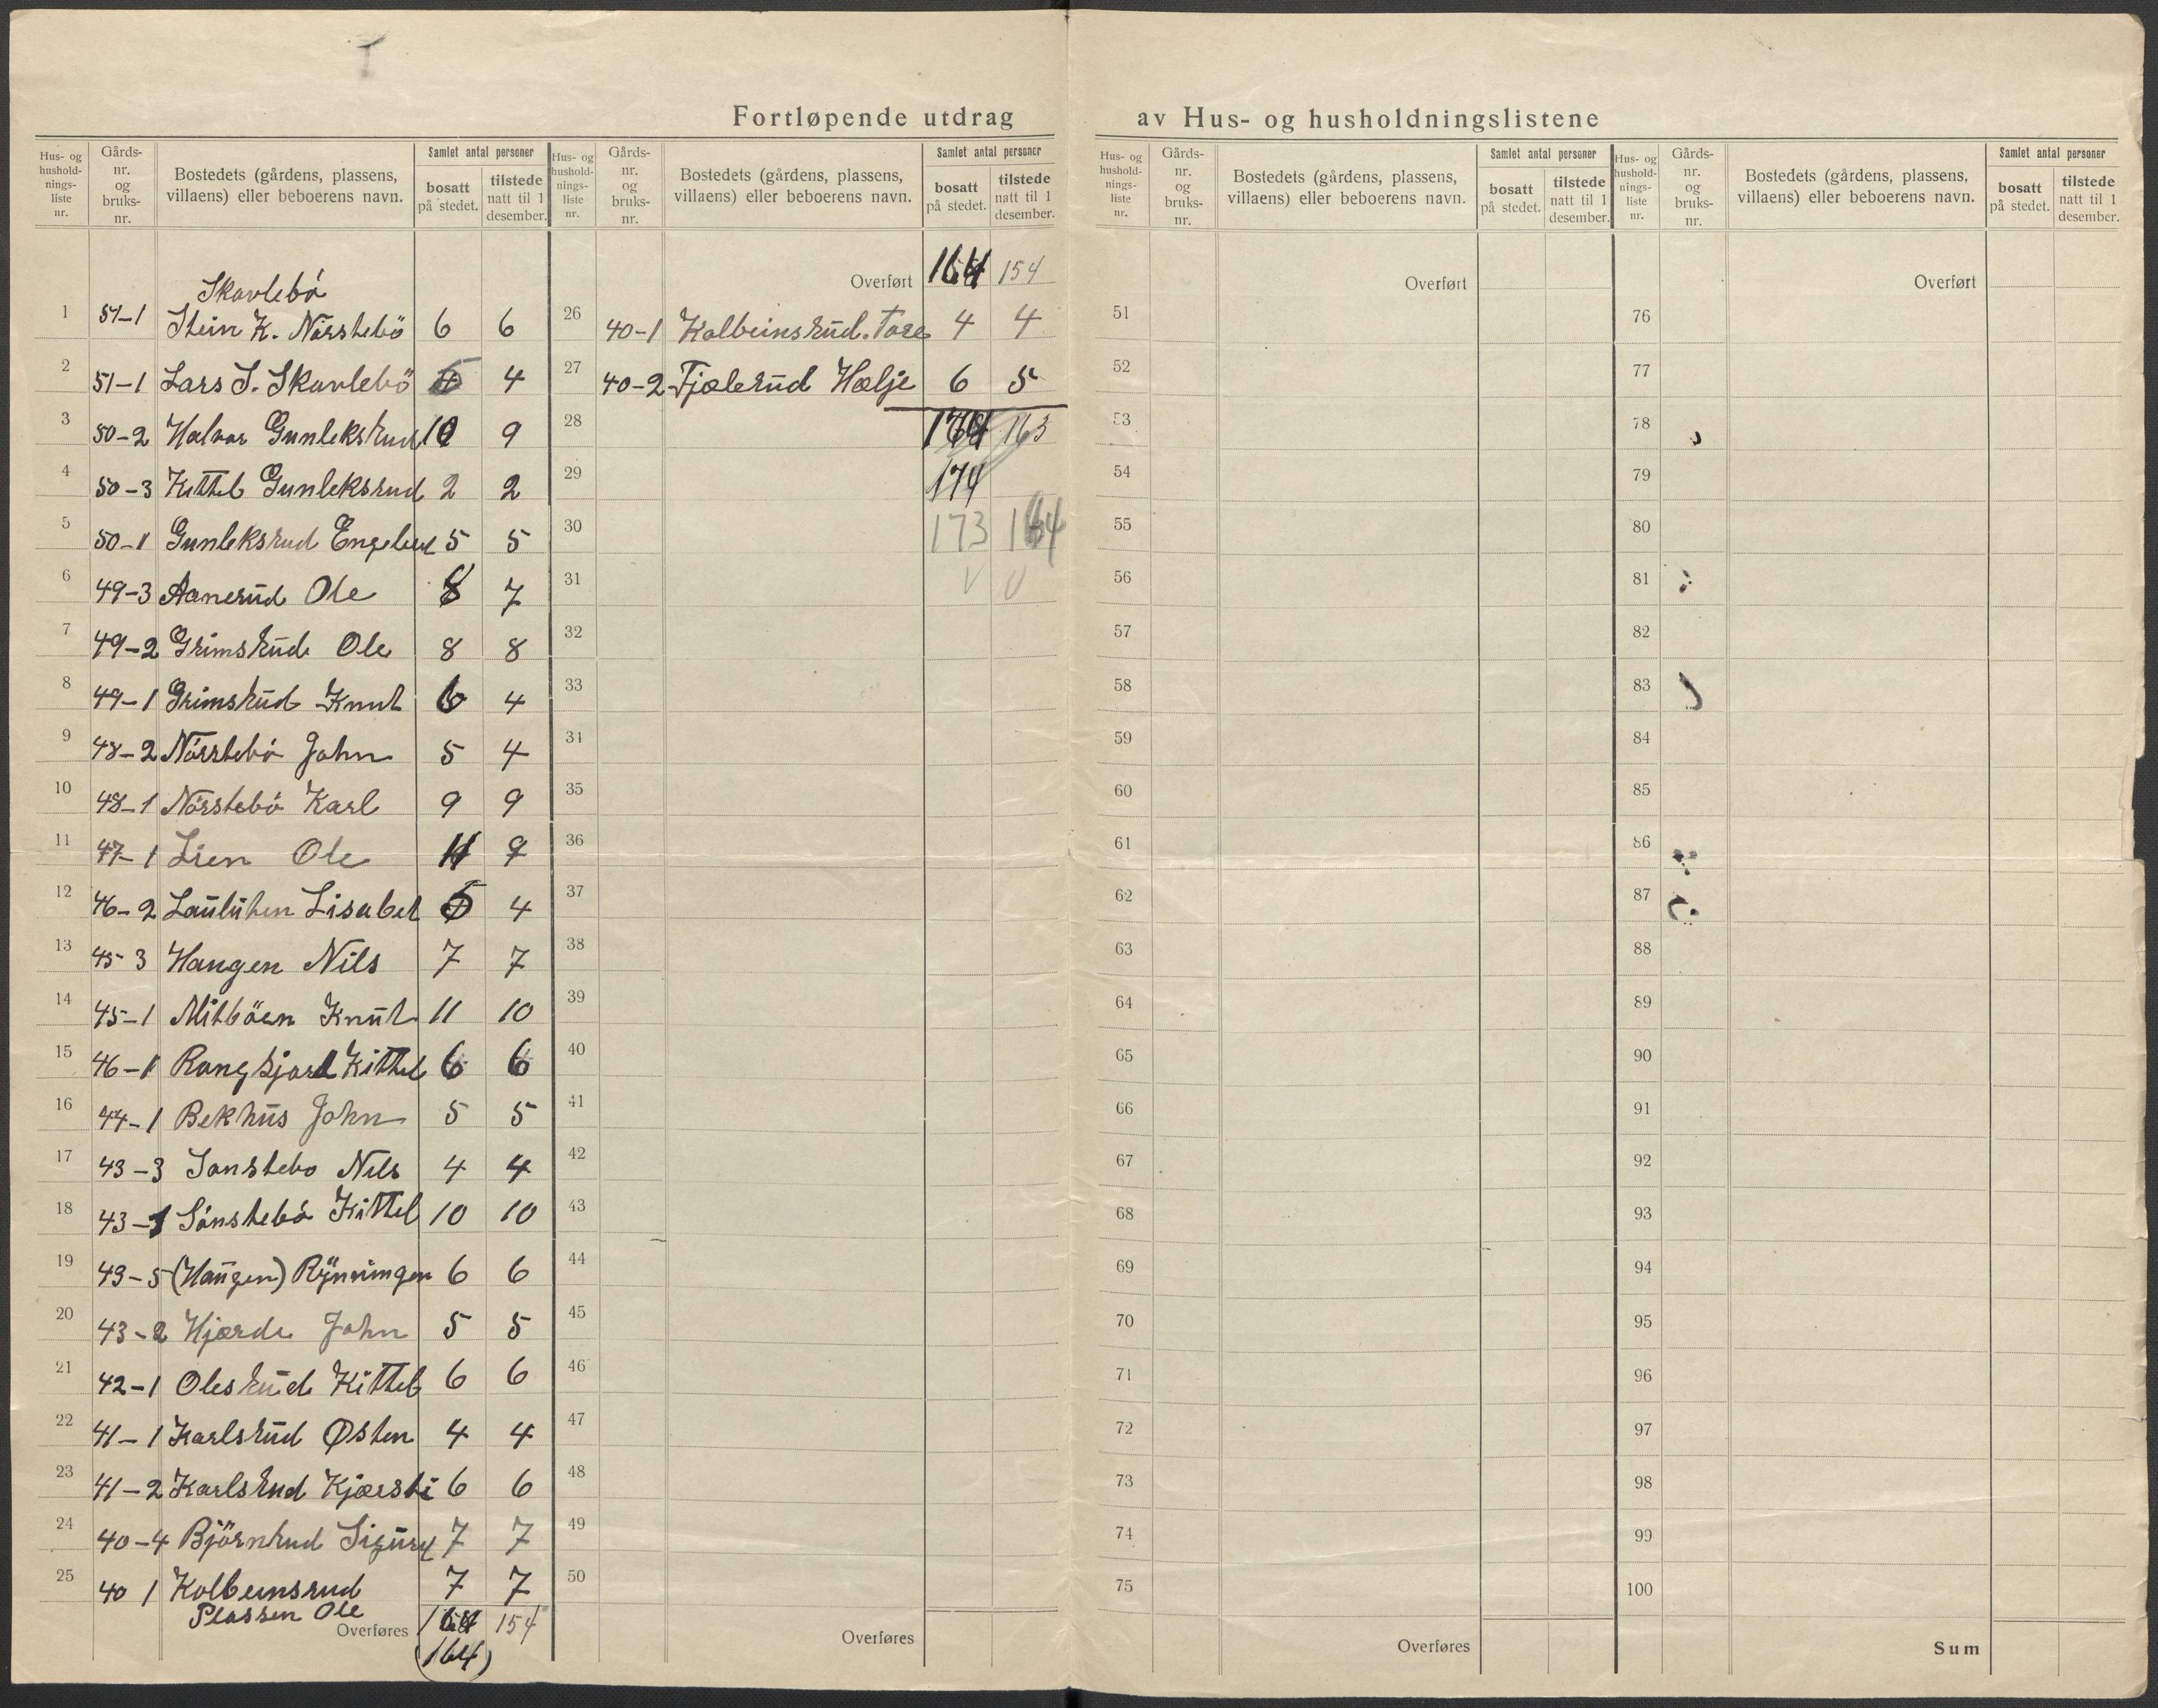 Fortløpende utdrag av Hus- og husholdningslistene
Hus- og hushold- nings- liste nr. Gårds- nr. og bruks- nr. Bostedets (gårdens, plassens, villaens) eller beboerens navn. Samlet antal personer bosatt på stedet. tilstede natt til 1 desember.
Hus- og hushold- nings- liste nr. Gårds- nr. og bruks- nr. Bostedets (gårdens, plassens, villaens) eller beboerens navn. Samlet antal personer bosatt på stedet. tilstede natt til 1 desember.
Hus- og hushold- nings- liste nr. Gårds- nr. og bruks- nr. Bostedets (gårdens, plassens, villaens) eller beboerens navn. Samlet antal personer bosatt på stedet. tilstede natt til 1 desember.
Hus- og hushold- nings- liste nr. Gårds- nr. og bruks- nr. Bostedets (gårdens, plassens, villaens) eller beboerens navn. Samlet antal personer bosatt på stedet. tilstede natt til 1 desember.
Skavlebö
1 51-1 Stein K. Nörstebö 6 6
2 51-1 Lars S. Skavlebö 5 4
3 50-2 Halvor Gunleksrud 10 9
4 50-3 Kittel Gunleksrud 2 2
5 50-1 Gunleksrud Engebret 5 5
6 49-3 Aanerud Ole 8 7
7 49-2 Grimsrud Ole 8 8
8 49-1 Grimsrud Knut 6 4
9 48-2 Nörstebö John 5 4
10 48-1 Nörstebö Karl 9 9
11 47-1 Lien Ole 11 9
12 46-2 Lisabet 5 4
13 45-3 Haugen Nils 7 7
14 45-1 Mitböen Knut 11 10
15 46-1 Kittel 6 6
16 44-1 Bekhus John 5 5
17 43-3 Sonstebo Nils 4 4
18 43-1 Sönstebö Kittel 10 10
19 43-5 (Haugen) Rynningen 6 6
20 43-2 Hjorde John 5 5
21 42-1 Olesrud Kittel 6 6
22 41-1 Karlsrud Østen 4 4
23 41-2 Karlsrud Kjærsti 6 6
24 40-4 Björnrud Sigurd 7 7
25 40 1 Kolbeinsrud 7 7
Plassen Ole
Overføres 164 154
(164)
Overført 164 154
26 40-1 Kolbeinsrud. Tore 4 4
27 40-2 Fjælerud Hælje 6 5
28 163
29 174
30 173 164
31 V V
32
33
34
35
36
37
38
39
40
41
42
43
44
45
46
47
48
49
50
Overføres
Overført
51
52
53
54
55
56
57
58
59
60
61
62
63
64
65
66
67
68
69
70
71
72
73
74
75
Overføres
Overført
76
77
78
79
80
81
82
83
84
85
86
87
88
89
90
91
92
93
94
95
96
97
98
99
100
Sum